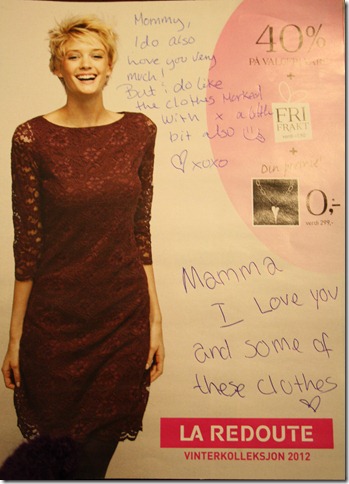 Mommy,
I do also
love you very
much!
But i do like
the clothes Marked
with x a little
bit also
xoxo
40%
PÅ VALGFRI VARE
+
FRI
FRAKT
+
Din premie
0,-
verdi 299,-
Mamma
I Love you
and some of
these clothes
LA REDOUTE
VINTERKOLLEKSJON 2012